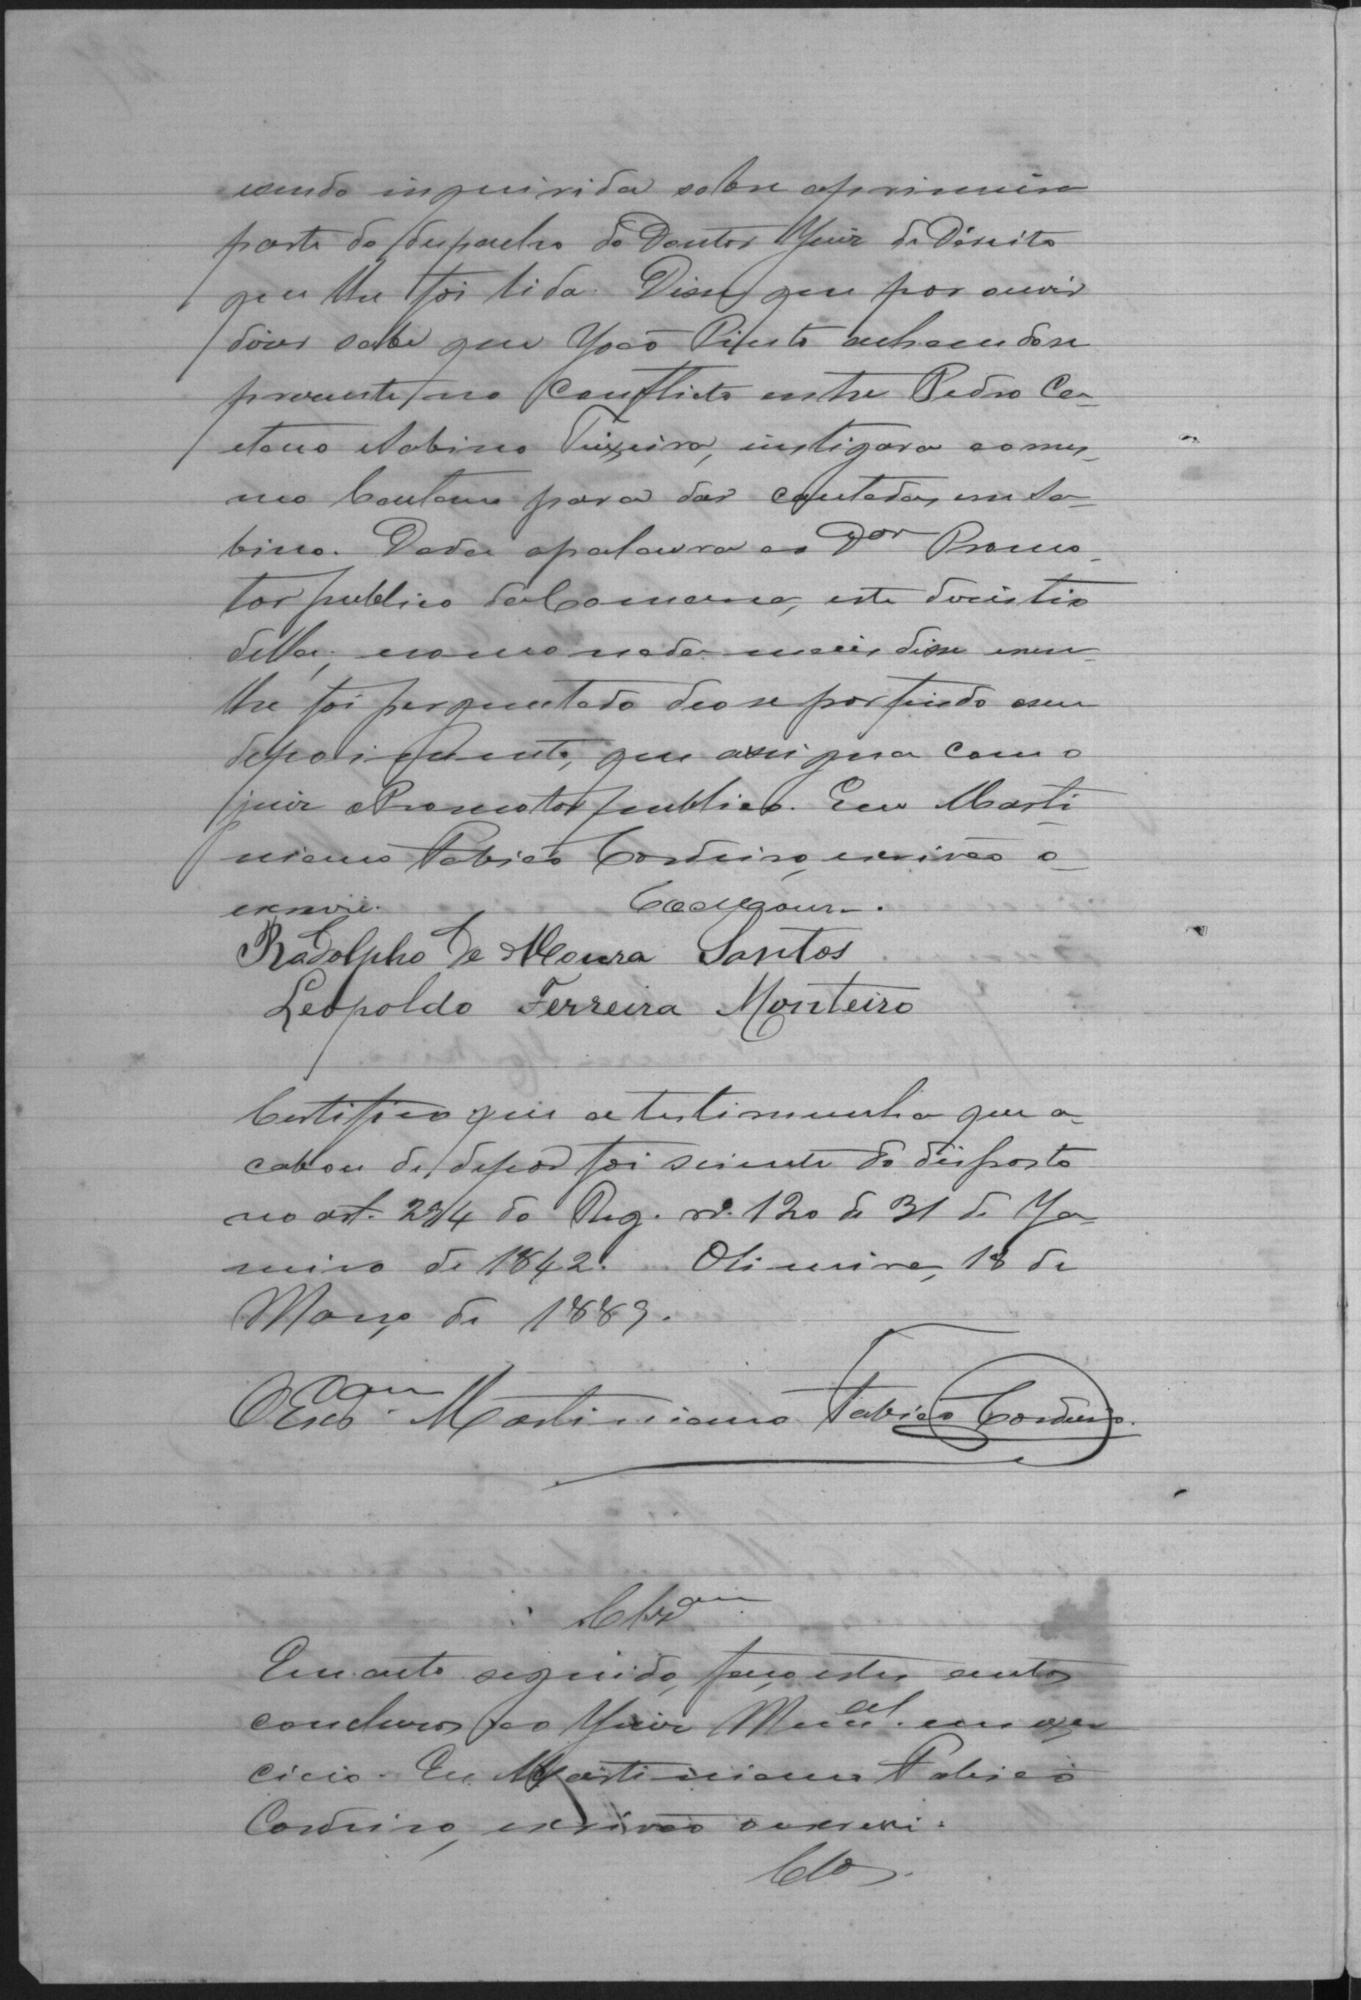 sendo inquirida sobre aprimeira
parte do despacho do Doutor Juiz de Direito
que lhe foi lida. Disse que por ouvir
dizer sabe que João Pinto achandose
presente no conflicto entre Pedro Ca-
etano eSabino Teixeira, instigara ao mes-
mo Caetano para dar centadas em Sa-
bino. Dada apalavra ao Dor Promo-
tor publico da Comarca, este desistio
della; ecomo nada mais disse enem
lhe foi perguntado deo se por findo oseu
depoimento, que assigna com o
juiz ePromotor publico. Eu Marti-
niano Fabião Cordeiro, escrivão o-
escrevi.
Radolpho De Moura Santos
Leopoldo Ferreira Monteiro
Certifico que a testimunha que a-
cabou de depor foi sciente do disposto
no art. 294 do Reg. nº. 120 de 31 de Ja-
neiro de 1842. 18 de
Março de 1889.
O Escram. Martiniano Fabião Cordeiro.
Clsam
Em acto seguido, faço estes autos
conclusos ao Juiz Munal. em exer
cicio. Eu Martiniano Fabião
Cordeiro, escrivão oescrevi.
Clos.